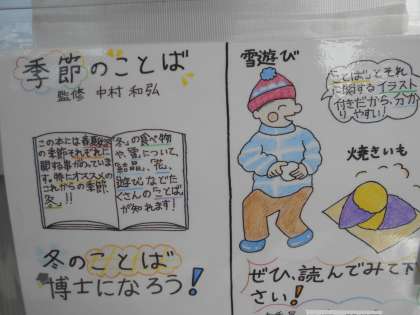 季節のことば
監修 中村 和弘
この本には春夏秋冬
の季節それぞれに
関する事がのっていま
す。特にオススメの
これからの季節、
冬!!
冬の食べ物
や、雪について、
「結晶」、「花」、
遊びなどた
くさんのことば
が知れます!
冬のことば
博士になろう!
雪遊び
「ことば」とそれ
に関するイラスト
付きだから、分か
りやすい!
焼きいも
ぜひ、読んでみて下
さい!